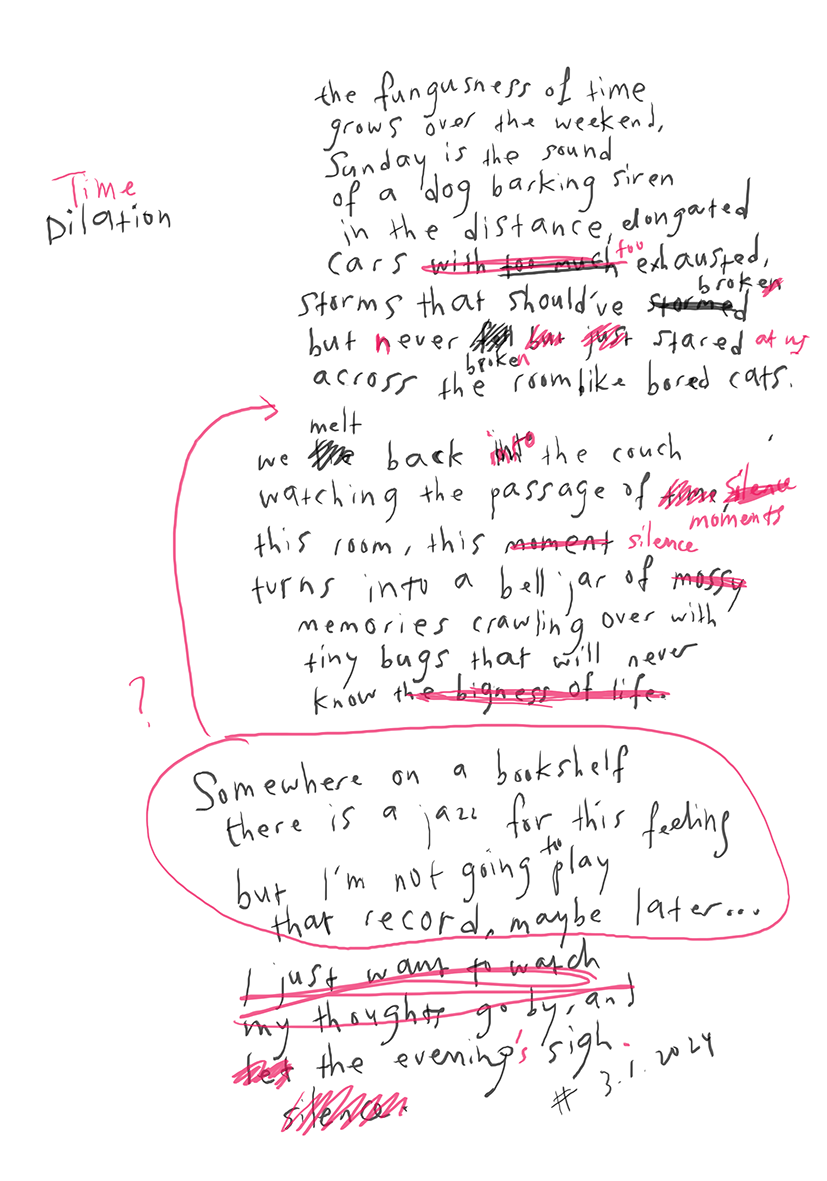 Time
Dilation
the fungusness of time
grows over the weekend,
Sunday is the sound
of a dog barking siren
in the distance, elongated
cars with too much too exhausted,
broken
storms that should've stormed
but never but just stared at us
broken
across the room like bored cats.
melt
we back into the couch
watching the passage of time, silence
moments
this room, this moment silence
turns into a bell jar of mossy
memories crawling over with
tiny bugs that will never
know the bigness of life.
?
Somewhere on a bookshelf
there is a jazz for this feeling
but I'm not going to play
that record, maybe later...
I just want to watch
my thoughts go by, and
let the evening's sigh.
silence.
# 3.1.2024